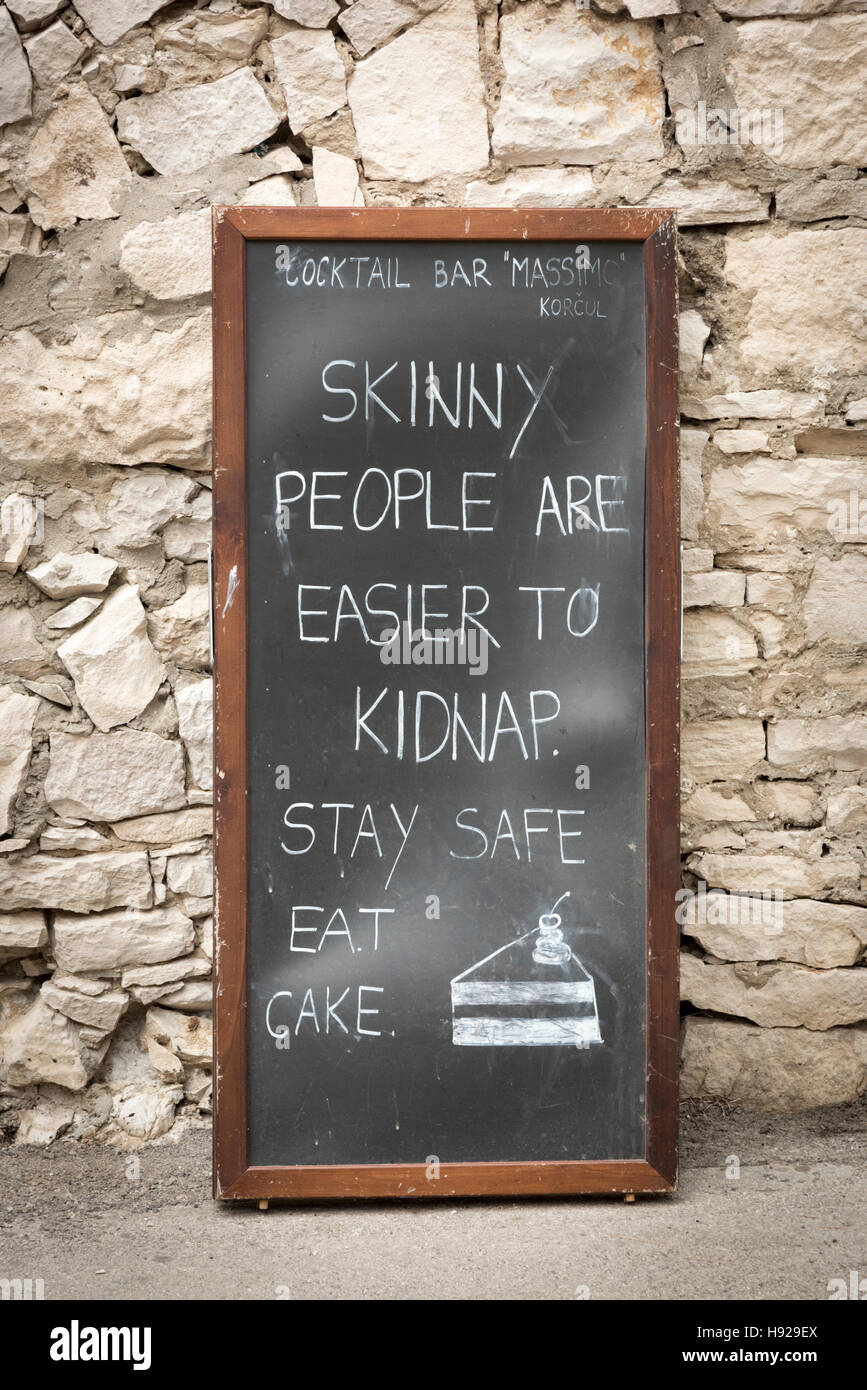 COCKTAIL BAR "MASSIMO"
KORČUL
SKINNY
PEOPLE ARE
EASIER TO
KIDNAP.
STAY SAFE
EAT
CAKE.
alamy
Image ID: H929EX
www.alamy.com